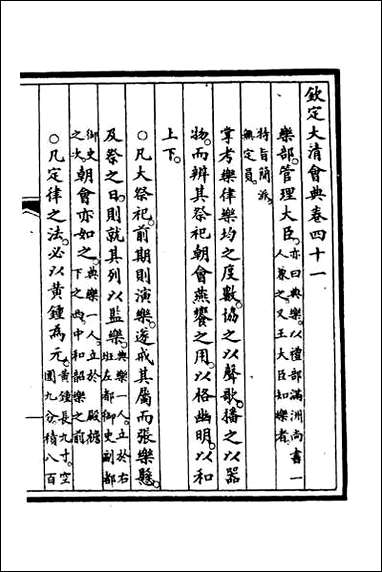 欽定大清會典卷四十一
樂部。管理大臣。亦曰典樂。以禮部滿洲尚書一
人兼之。又王大臣知樂者。
特旨簡派。
無定員。
掌考樂律樂均之度數。協之以聲歌。播之以器
物。而辨其祭祀朝會燕饗之用。以格幽明。以和
上下。
○凡大祭祀。前期則演樂。遂戒其屬而張樂懸。
及祭之日。則就其列以監樂。典樂一人。立於右
班左都御史副都
御史
之次。朝會亦如之。典樂一人。立於殿檐
下之西。中和韶樂之前。
○凡定律之法。必以黃鍾為元。黃鍾長九寸。空
圍九分。積八百